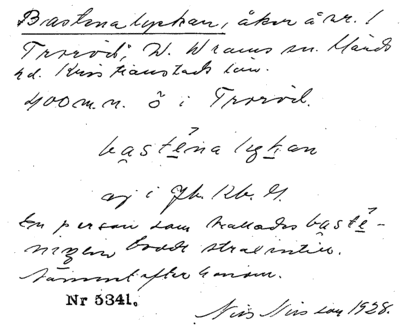 Bastenalyckan, åker å nr. 1
Troröd, V. Vrams sn. Gärds
hd. Kristianstads län.
400 m. n. ö i Troröd.
bastena lykan
ej i Jb. Kb. G.
En person som kallades baste-
nigen bodde strax intill.
Nämnt efter honom.
Nr 5341.
Nils Nilsson 1928.